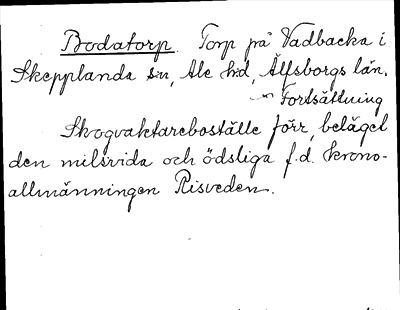 Bodatorp. Torp på Vadbacka i
Skepplanda sn, Ale hd, Älfsborgs län.
Fortsättning
Skogvaktareboställe förr, beläget
den milsvida och ödsliga f.d. krono-
allmänningen Risveden.